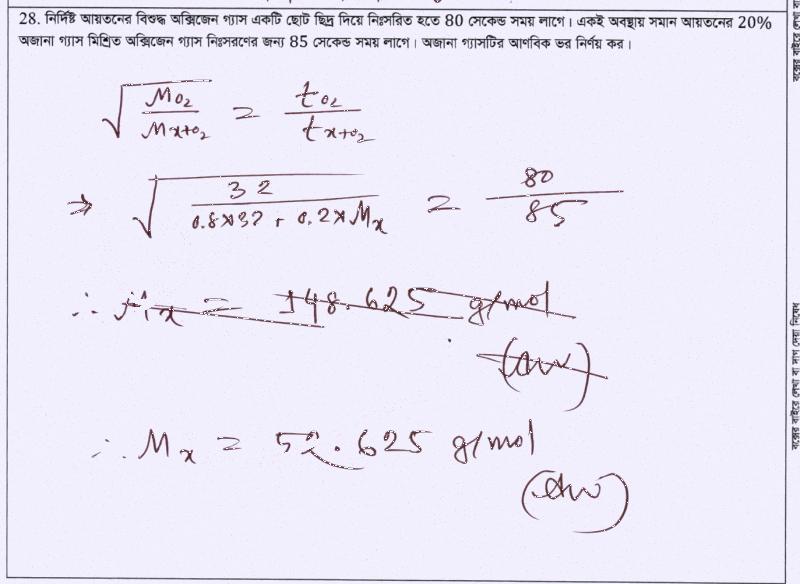 28. নির্দিষ্ট আয়তনের বিশুদ্ধ অক্সিজেন গ্যাস একটি ছোট ছিদ্র দিয়ে নিঃসরিত হতে 80 সেকেন্ড সময় লাগে। একই অবস্থায় সমান আয়তনের 20%
অজানা গ্যাস মিশ্রিত অক্সিজেন গ্যাস নিঃসরণের জন্য 85 সেকেন্ড সময় লাগে। অজানা গ্যাসটির আণবিক ভর নির্ণয় কর।
√(M_O₂ / M_x+O₂) = t_O₂ / t_x+O₂
⇒ √(32 / (0.8×32 + 0.2×M_x)) = 80 / 85
∴ M_x = 148.625 g/mol
(Ans)
∴ M_x = 52.625 g/mol
(Ans)
বক্সের বাইরে লেখা বা দাগ দেয়া নিষেধ